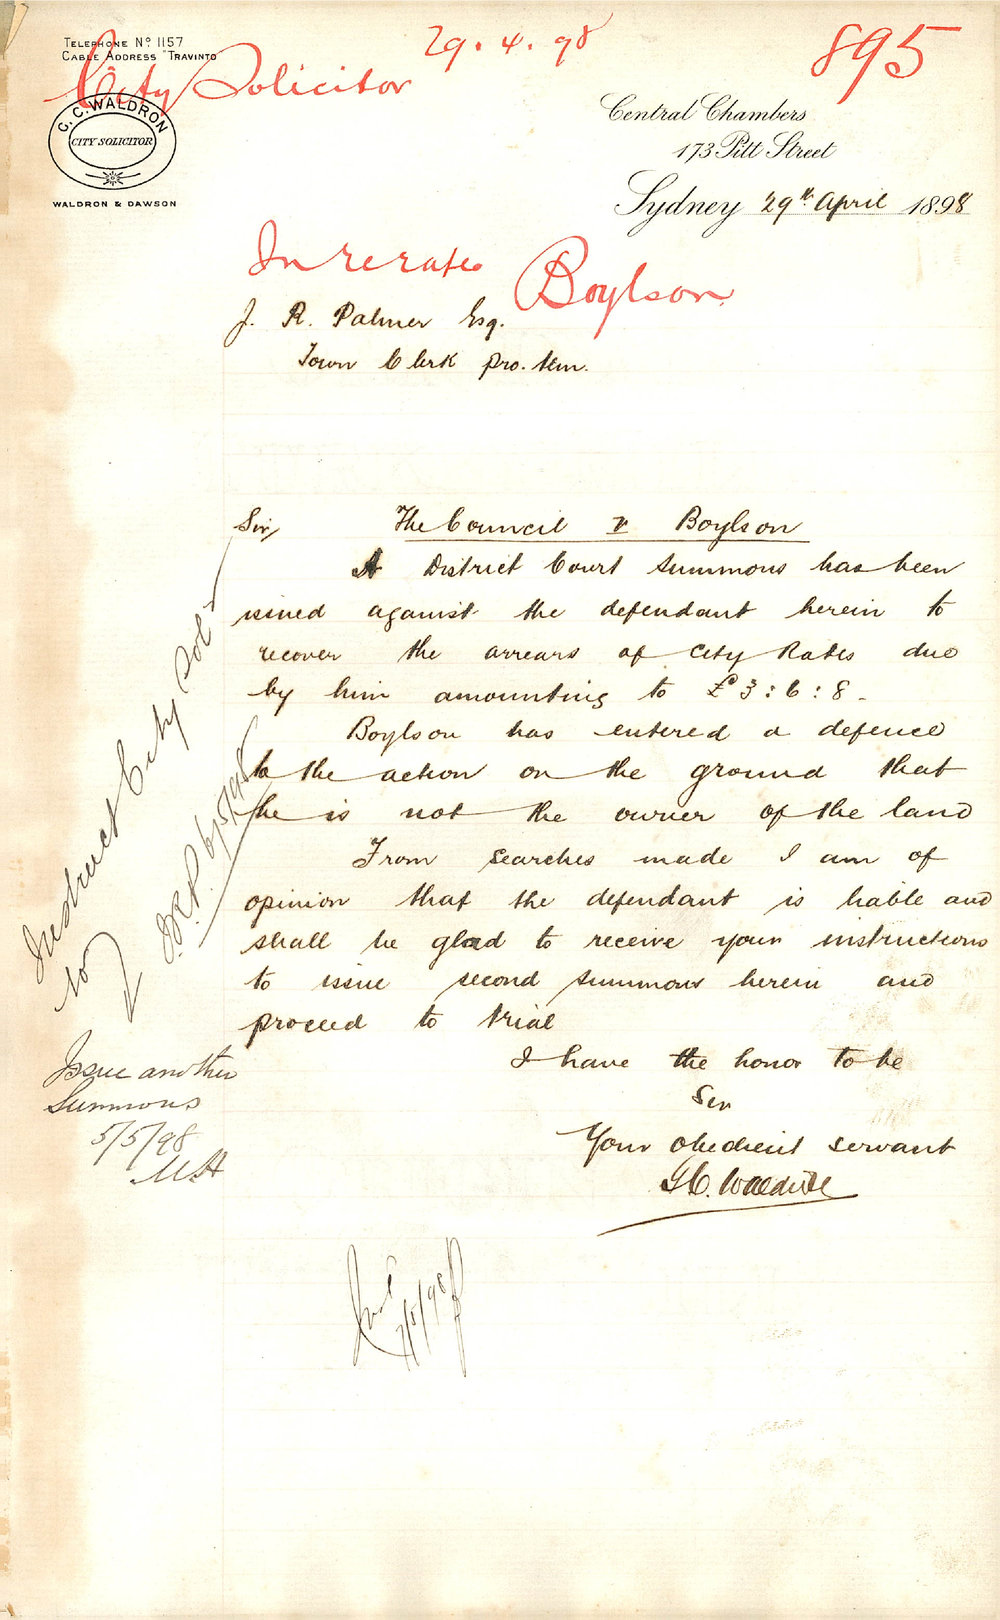 29.4.98
895
TELEPHONE Nº 1157
CABLE ADDRESS "TRAVINTO"
City Solicitor
C. C. WALDRON
CITY SOLICITOR
WALDRON & DAWSON
Central Chambers
173 Pitt Street
Sydney 29th April 1898
In re rates Boylson
J. R. Palmer Esq.
Town Clerk pro. tem.
Sir, The Council v Boylson
A District Court Summons has been
issued against the defendant herein to
recover the arrears of City Rates due
by him amounting to £3:6:8.
Boylson has entered a defence
to the action on the ground that
he is not the owner of the land
From searches made I am of
opinion that the defendant is liable and
shall be glad to receive your instructions
to issue second summons herein and
proceed to trial
I have the honor to be
Sir
Your obedient servant
Instruct City Sol
to
J.R.P. 6/5/98
Issue another
Summons
5/5/98